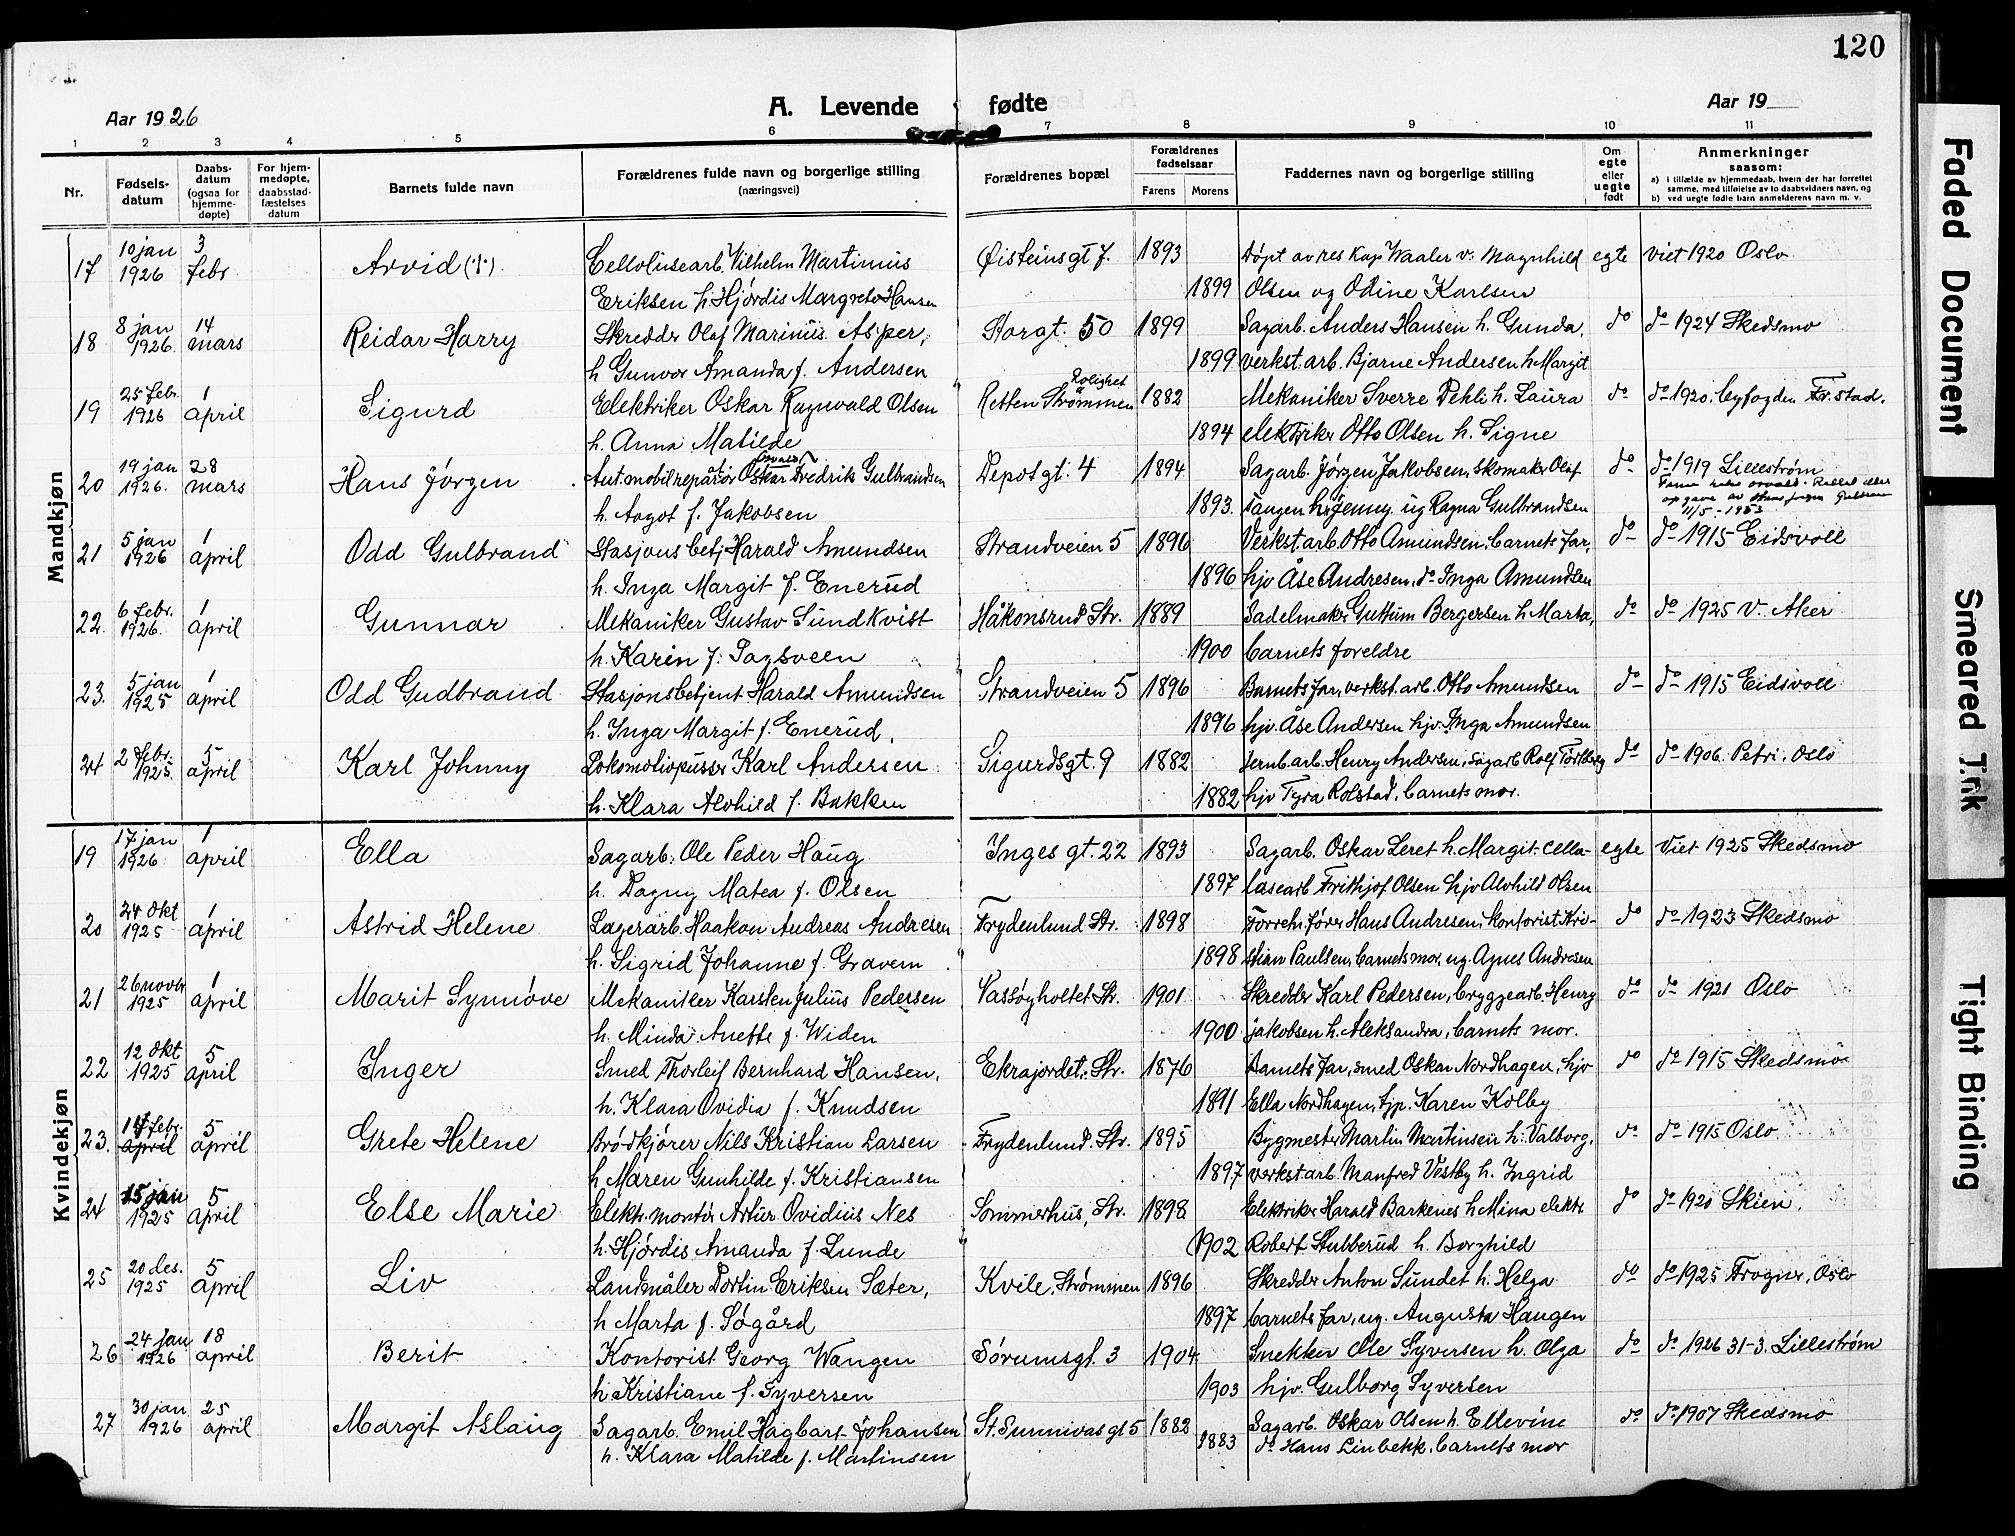 120
Aar 1926 A. Levende fødte Aar 19
1 2 3 4 5 6 7 8 9 10 11
Nr. Fødsels-datum Daabs-datum (ogsaa for hjemme-døpte) For hjem-medøpte, daabsstad-fæstelses datum Barnets fulde navn Forældrenes fulde navn og borgerlige stilling (næringsvei) Forældrenes bopæl Forældrenes fødselsaar Farens Morens Faddernes navn og borgerlige stilling Om egte eller uegte født Anmerkninger saasom:
a) i tilfælde av hjemmedaab, hvem der har forrettet samme, med tilføielse av to daabsvidners navn, og
b) ved uegte fødte barn anmelderens navn m. v.
Mandkjøn
17 10 jan 1926 3 febr Arvid Cellolusearb. Vilhelm Martinius Øisteinsgt 7. 1893 Døpt av res Kap Waaler v: Magnhild egte viet 1920 Oslo
Eriksen h Hjørdis Margrete Hansen 1899 Olsen og Odine Karlsen
18 8 jan 1926 14 mars Reidar Harry Skredder Olaf Marinus Asper, Storgt. 50 1899 Sagarb. Anders Hansen h. Gunda, do do 1924 Skedsmo
h Gunvor Amanda f. Andersen 1899 verkst.arb. Bjarne Andersen h Margit
19 25 febr. 1926 1 april Sigurd Elektriker Oskar Ragnvald Olsen Rolighet Retten Strømmen 1882 Mekaniker Sverre Pehli h. Laura do do 1920. byfogden Fr.stad.
h. Anna Matilde 1894 elektriker Otto Olsen h. Signe
20 19 jan 1926. 28 mars Hans Jørgen Automobilreparatør Oskar Fredrik Gulbrandsen Depotgt. 4 1894 Sagarb. Jørgen Jakobsen, skomaker Olaf do do 1919 Lillestrøm
h. Aagot f. Jakobsen 1893. Tangen h. Jenny, ug Ragna Gulbrandsen
11/5-1953
21 5 jan 1926 1 april Odd Gulbrand Stasjonsbetj Harald Amundsen Strandveien 5 1896 Verkst.arb. Otto Amundsen, barnets far, do do 1915 Eidsvoll
h. Inga Margit f. Enerud 1896 hjv Åse Andresen, do Inga Amundsen
22. 6 febr. 1926. 1 april Gunnar Mekaniker Gustav Sundkvist Håkonsrud Str. 1889 Sadelmaker Guttum Bergersen h Marta, do do 1925 V. Aker
h. Karin f. Dagsveen 1900 barnets foreldre
23. 5 jan 1925 1 april Odd Gudbrand Stasjonsbetjent Harald Amundsen Strandveien 5 1896 Barnets far, verkst.arb. Otto Amundsen do do 1915 Eidsvoll
h. Inga Margit f. Enerud, 1896 hjv Åse Andersen hjv Inga Amundsen
24 2 febr. 1925. 5 april Karl Johnny Lokomotivpusser Karl Andersen Sigurdsgt. 9 1882 Jernb.arb. Henry Andersen, Sagarb Rolf do do 1906. Petri, Oslo
h. Klara Alvhild f. Bakken 1882 hjv Tyra Rolstad, barnets mor.
Kvindekjøn
19 17 jan 1926 1 april Ella Sagarb. Ole Peder Haug Inges gt. 22 1893 Sagarb. Oskar Leret h. Margit. cello- egte Viet 1925 Skedsmo
h. Dagny Matea f. Olsen 1897 lusearb Frithjof Olsen hjv Alvhild Olsen
20 24 okt 1925 1 april Astrid Helene Lagerarb. Haakon Andreas Andresen Frydenlund Str. 1898 Forretn.fører Hans Andresen, kontorist Kri- do do 1923 Skedsmo
h. Sigrid Johanne f. Gravem 1898 stian Paulsen, barnets mor, ug. Agnes Andresen
21 26 novbr 1925 1 april Marit Synnøve Mekaniker Karsten Julius Pedersen Vassøyholtet Str. 1901 Skredder Karl Pedersen, bryggearb. Henry do do 1921 Oslo
h. Minda Anette f. Widen 1900 jakobsen h. Aleksandra, barnets mor.
22 12 okt 1925 5 april Inger Smed Thorleif Bernhard Hansen, Ekrajordet, Str. 1876 Barnets far, smed Oskar Nordhagen, hjv do do 1915 Skedsmo
h. Klara Ovidia f. Knudsen 1891 Ella Nordhagen, tjp. Karen Kolby
23. 17 febr. april 5 april Grete Helene Brødkjører Nils Kristian Larsen Frydenlund. Str. 1895 Bygmester Martin Martinsen h. Valborg. do do 1915 Oslo
h Maren Gunhilde f. Kristiansen 1897 verkst.arb Manfred Vestby h. Ingrid
24 15 jan 1925 5 april Else Marie Elektr.montør Artur Ovidius Nes Sommerhus, Str. 1898 Elektriker Harald Barkenes h Mina elektr do do 1920 Skien.
h. Hjørdis Amanda f. Lunde 1902 Robert Stubberud h. Borghild
25 20 des. 1925 5 April Liv Landmåler Dortin Eriksen Sæter, Kvile, Strømmen 1896 Skredder Anton Sundet h. Helga do do 1925 Frogner, Oslo
h Marta f. Søgård 1897 barnets far, ug. Augusta Haugen
26 24 jan 1926 18 april Berit Kontorist Georg Wangen Sørumsgt. 3 1904 Snekker Ole Syversen h. Olga do do 1926 31-3. Lillestrøm
h Kristiane f. Syversen 1903 hjv. Gulborg Syversen
27 30 jan 1926 25 april Margit Aslaug Sagarb. Emil Hagbart Johansen St. Sunnivas gt 5 1882 Sagarb. Oskar Olsen h. Ellevine do do 1907 Skedsmo
h. Klara Matilde f. Martinsen 1883 do Hans Linbekk, barnets mor
Faded Document
Smeared Ink
Tight Binding